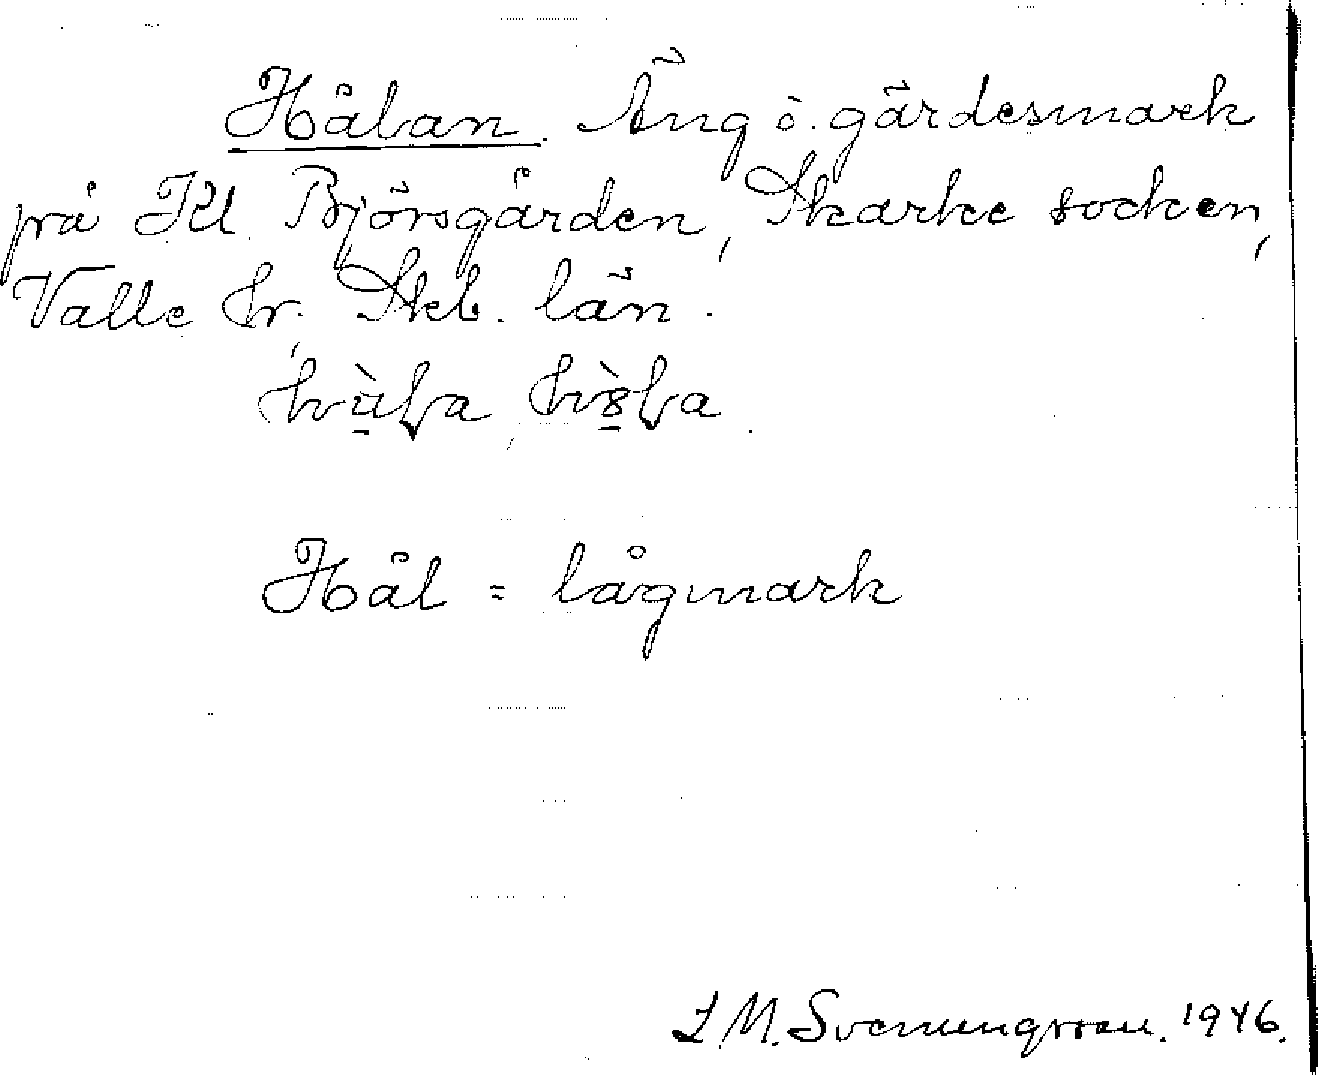 Hålan. Äng o. gärdesmark
på Kl. Björsgården, Skarke socken,
Valle hr. Skb. län.
Hål = lågmark
I. M. Svennungsson. 1946.